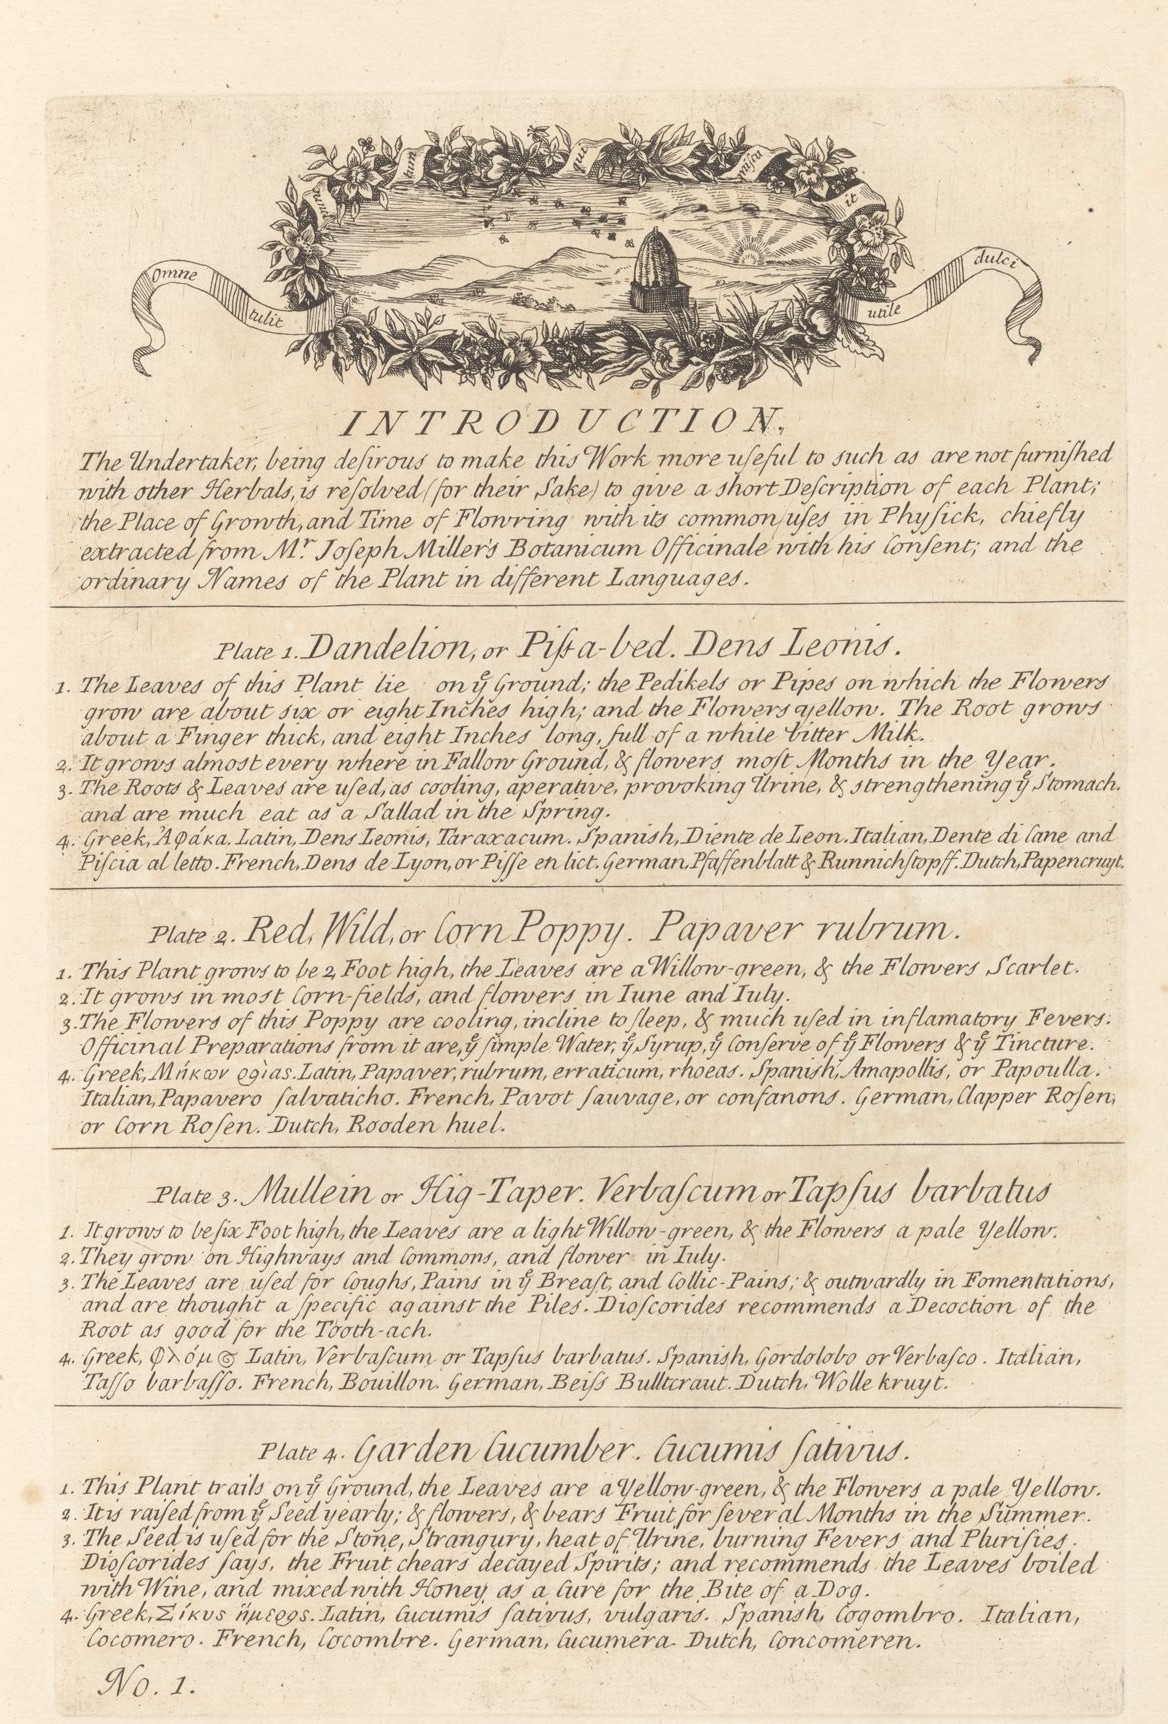 Omne
tulit
punc
tum
qui
miscu
it
utile
dulci
INTRODUCTION.
The Undertaker, being deſirous to make this Work more uſeful to such as are not furniſhed
with other Herbals, is reſolved (for their Sake) to give a short Deſcription of each Plant;
the Place of Growth, and Time of Flowring with its common uſes in Phyſick, chiefly
extracted from Mʳ. Joſeph Miller's Botanicum Officinale with his Conſent; and the
ordinary Names of the Plant in different Languages.
Plate 1. Dandelion, or Piſs a-bed. Dens Leonis.
1. The Leaves of this Plant lie on yͤ Ground; the Pedikels or Pipes on which the Flowers
grow are about six or eight Inches high; and the Flowers yellow. The Root grows
about a Finger thick, and eight Inches long, full of a white bitter Milk.
2. It grows almost every where in Fallow Ground, & flowers moſt Months in the Year.
3. The Roots & Leaves are uſed, as cooling, aperative, provoking Urine, & strengthening yͤ Stomach.
and are much eat as a Sallad in the Spring.
4. Greek, Ἀφάκα. Latin, Dens Leonis, Taraxacum. Spanish, Diente de Leon. Italian, Dente di Cane and
Piſcia al letto. French, Dens de Lyon, or Piſſe en lict. German, Pfaffenblatt & Runnichſtopff. Dutch, Papencruyt.
Plate 2. Red, Wild, or Corn Poppy. Papaver rubrum.
1. This Plant grows to be 2 Foot high, the Leaves are a Willow-green, & the Flowers Scarlet.
2. It grows in most Corn-fields, and flowers in Iune and Iuly.
3. The Flowers of this Poppy are cooling, incline to ſleep, & much uſed in inflamatory Fevers.
Officinal Preparations from it are, yͤ ſimple Water, yͤ Syrup, yͤ Conſerve of yͤ Flowers & yͤ Tincture.
4. Greek, Μήκων ροιας. Latin, Papaver, rubrum, erraticum, rhoeas. Spanish, Amapollis, or Papoulla.
Italian, Papavero ſalvaticho. French, Pavot ſauvage, or confanons. German, Clapper Roſen,
or Corn Roſen. Dutch, Rooden huel.
Plate 3. Mullein or Hig-Taper. Verbaſcum or Tapſus barbatus
1. It grows to be ſix Foot high, the Leaves are a light Willow-green, & the Flowers a pale Yellow.
2. They grow on Highways and Commons, and flower in Iuly.
3. The Leaves are uſed for Coughs, Pains in yͤ Breaſt, and Collic-Pains; & outwardly in Fomentations,
and are thought a ſpecific against the Piles. Dioſcorides recommends a Decoction of the
Root as good for the Tooth-ach.
4. Greek, Φλόμος Latin, Verbaſcum or Tapſus barbatus. Spanish, Gordolobo or Verbaſco. Italian,
Taſſo barbaſſo. French, Bouillon. German, Beiſs Bulltcraut. Dutch, Wolle kruyt.
Plate 4. Garden Cucumber. Cucumis ſativus.
1. This Plant trails on yͤ Ground, the Leaves are a Yellow-green, & the Flowers a pale Yellow.
2. It is raiſed from yͤ Seed yearly; & flowers, & bears Fruit for ſeveral Months in the Summer.
3. The Seed is uſed for the Stone, Strangury, heat of Urine, burning Fevers and Pluriſies.
Dioſcorides ſays, the Fruit chears decayed Spirits; and recommends the Leaves boiled
with Wine, and mixed with Honey as a Cure for the Bite of a Dog.
4. Greek, Σίκυς ἥμερος. Latin, Cucumis ſativus, vulgaris. Spanish, Cogombro. Italian,
Cocomero. French, Cocombre. German, Cucumera. Dutch, Concomeren.
No. 1.